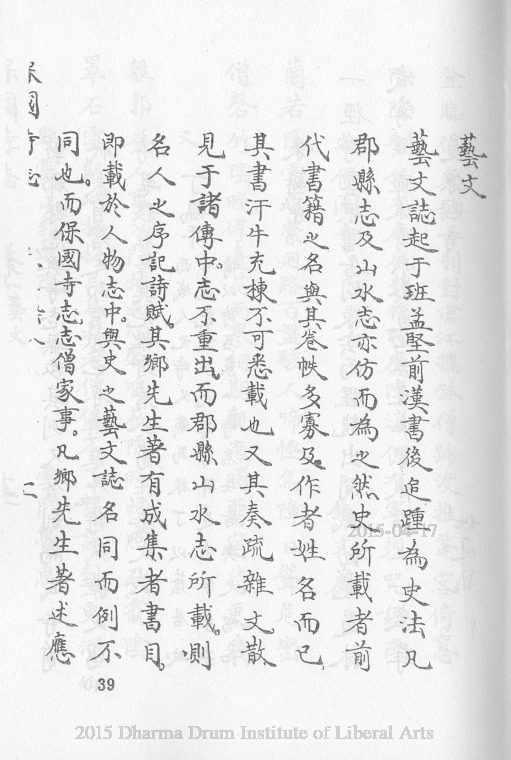 藝文
藝文誌起于班孟堅前漢書後追踵為史法凡
郡縣志及山水志亦仿而為之然史所載者前
代書籍之名與其卷帙多寡及作者姓名而已
其書汗牛充棟不可悉載也又其奏疏雜文散
見于諸傳中。志不重出。而郡縣山水志所載。則
名人之序記詩賦。其鄉先生著有成集者書目。
即載於人物志中。與史之藝文誌名同而例不
同也。而保國寺志。志僧家事。凡鄉先生著述應
39
2015-04-17
2015 Dharma Drum Institute of Liberal Arts